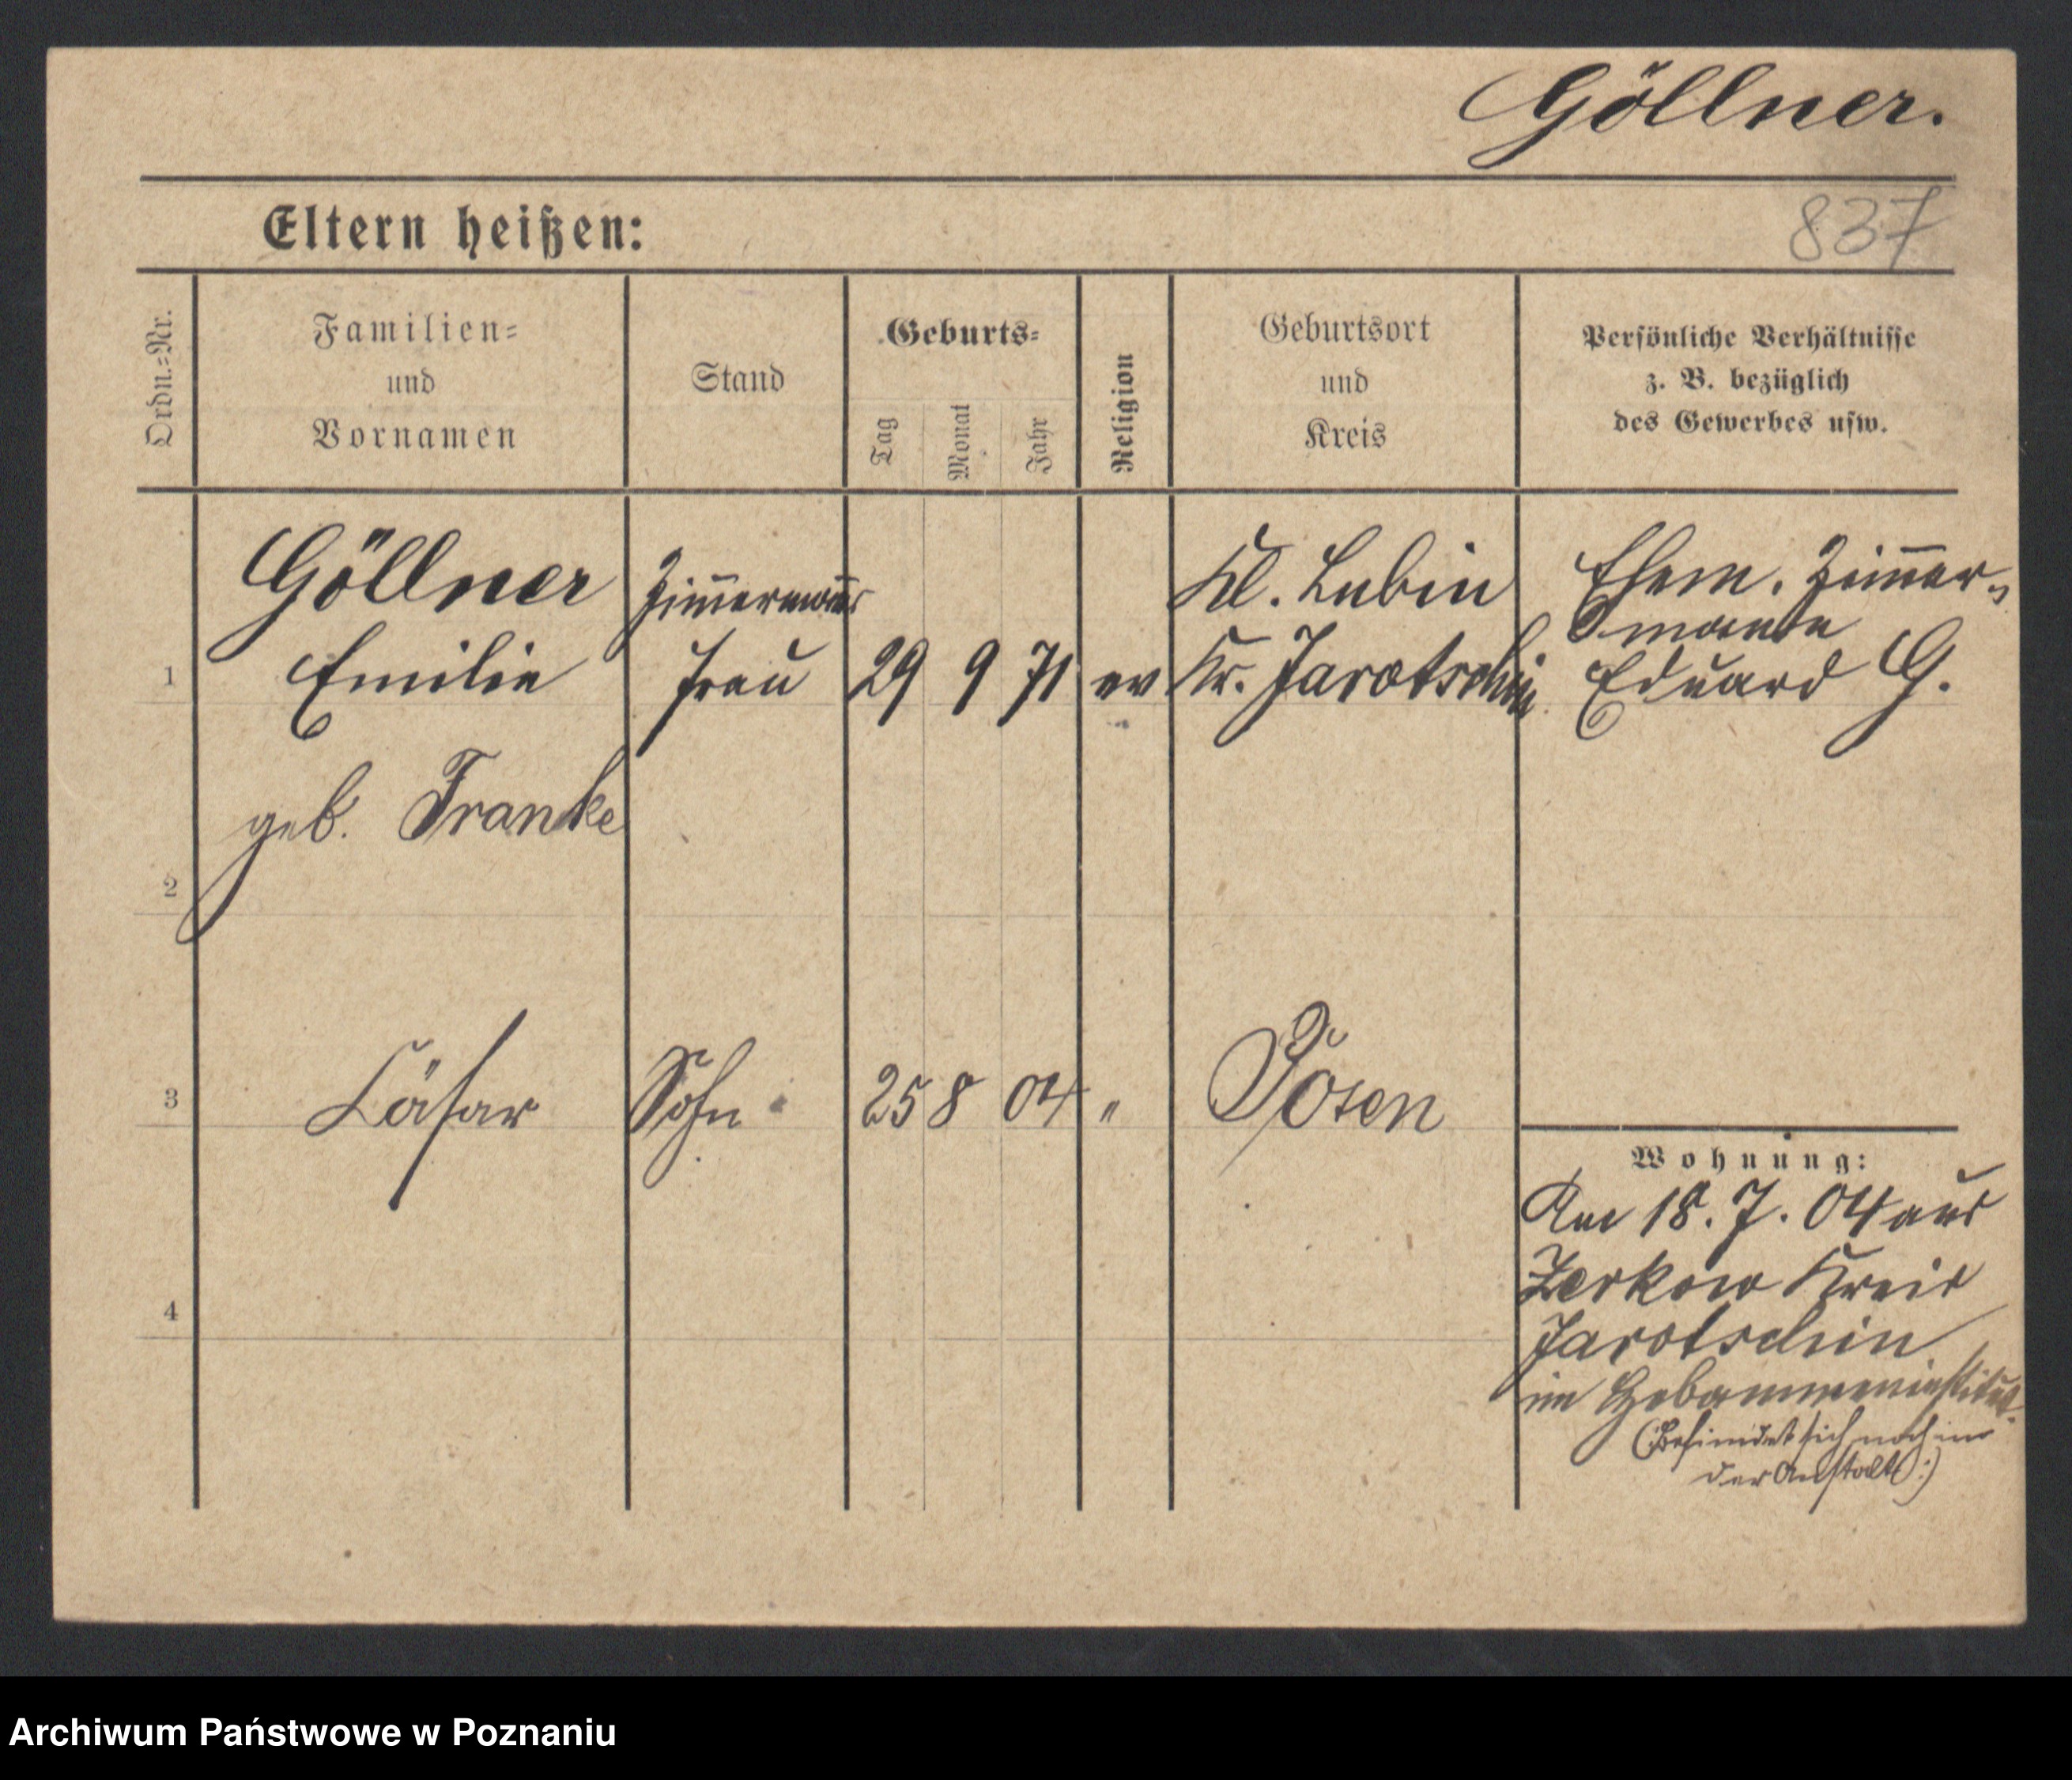 Göllner.
Eltern heißen:
837
Ordn.=Nr.
Familien=
und
Vornamen
Stand
Geburts=
Tag
Monat
Jahr
Religion
Geburtsort
und
Kreis
Persönliche Verhältnisse
z. B. bezüglich
des Gewerbes usw.
1
Göllner
Emilie
geb. Franke
Zim̅ermanns
frau
29 9 71
ev
Kl. Lubin
Kr. Jarotschin
Ehem. Zim̅er-
mann
Eduard G.
2
3
Cäsar
Sohn
25 8 04
"
Posen
4
Wohnung:
Am 18. 7. 04 aus
Zerkow Kreis
Jarotschin
im Hebammeninstitut.
(:Befindet sich noch in
der Anstalt:)
Archiwum Państwowe w Poznaniu